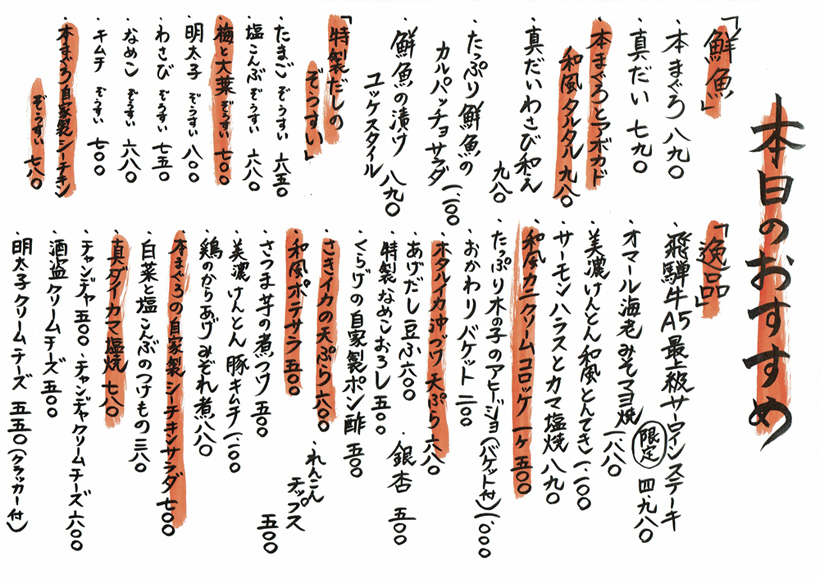 本日のおすすめ
「鮮魚」
・本まぐろ 八九〇
・真だい 七九〇
・本まぐろとアボカド
和風タルタル 九八〇
・真だいわさび和え
九八〇
・たっぷり鮮魚の
カルパッチョサラダ 一、一〇〇
・鮮魚の漬け
ユッケスタイル 八九〇
「特製だしの
ぞうすい」
・たまご ぞうすい 六五〇
・塩こんぶ ぞうすい 六八〇
・梅と大葉 ぞうすい 七〇〇
・明太子 ぞうすい 八〇〇
・わさび ぞうすい 七五〇
・なめこ ぞうすい 六八〇
・キムチ ぞうすい 七〇〇
・本まぐろ自家製シーチキン
ぞうすい 七八〇
「逸品」
・飛騨牛A5最上級サーロインステーキ
限定 四、九八〇
・オマール海老みそマヨ焼
一、八八〇
・美濃けんとん和風とんてき 一、一〇〇
・サーモンハラスとカマ塩焼 八九〇
・和風カニクリームコロッケ 一ヶ 五〇〇
・たっぷり木の子のアヒージョ(バケット付) 一、〇〇〇
・おかわりバケット 二〇〇
・ホタルイカ沖づけ天ぷら 六八〇
・あげだし豆ふ 六〇〇
・銀杏 五〇〇
・特製なめこおろし 五〇〇
・くらげの自家製ポン酢 五〇〇
・さきイカの天ぷら 六〇〇
・れんこん
チップス
五〇〇
・和風ポテサラ 五〇〇
・さつま芋の煮つけ 五〇〇
・美濃けんとん豚キムチ 一、一〇〇
・鶏のからあげみぞれ煮 八八〇
・本まぐろの自家製シーチキンサラダ 七〇〇
・白菜と塩こんぶのつけもの 三八〇
・真ダイカマ塩焼 七八〇
・チャンヂャ 五〇〇・チャンヂャクリームチーズ 六〇〇
・酒盗クリームチーズ 五〇〇
・明太子クリームチーズ 五五〇(クラッカー付)